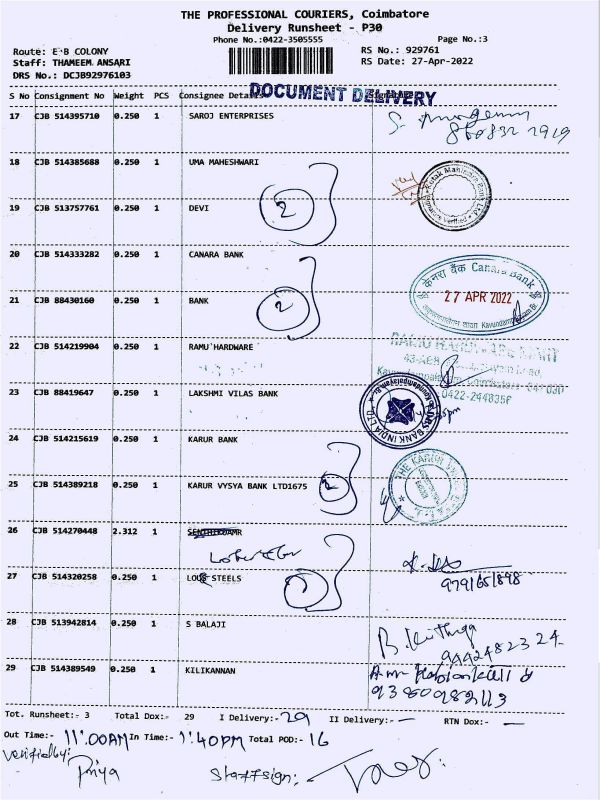 THE PROFESSIONAL COURIERS, Coimbatore
Delivery Runsheet - P30
Phone No.:0422-3505555
Page No.:3
Route: E B COLONY
RS No.: 929761
Staff: THAMEEM ANSARI
RS Date: 27-Apr-2022
DRS No.: DCJB92976103
DOCUMENT DELIVERY
S No Consignment No Weight PCS Consignee Details
17 CJB 514395710 0.250 1 SAROJ ENTERPRISES
18 CJB 514385688 0.250 1 UMA MAHESHWARI
Kotak Mahindra Bank Ltd
Verified
19 CJB 513757761 0.250 1 DEVI
2
20 CJB 514333282 0.250 1 CANARA BANK
केनरा बैंक Canara Bank
27 APR 2022
21 CJB 88430160 0.250 1 BANK
2
22 CJB 514219904 0.250 1 RAMU HARDWARE
23 CJB 88419647 0.250 1 LAKSHMI VILAS BANK
DBS BANK INDIA LTD
24 CJB 514215619 0.250 1 KARUR BANK
THE KARUR
25 CJB 514389218 0.250 1 KARUR VYSYA BANK LTD1675
2
26 CJB 514270448 2.312 1
27 CJB 514320258 0.250 1 STEELS
9791651898
28 CJB 513942814 0.250 1 S BALAJI
9442482324
29 CJB 514389549 0.250 1 KILIKANNAN
Tot. Runsheet:- 3 Total Dox:- 29 I Delivery:- 29 II Delivery:- — RTN Dox:- —
Out Time:- 11:00AM In Time:- 1:40PM Total POD:- 16
Priya
Staff sign: